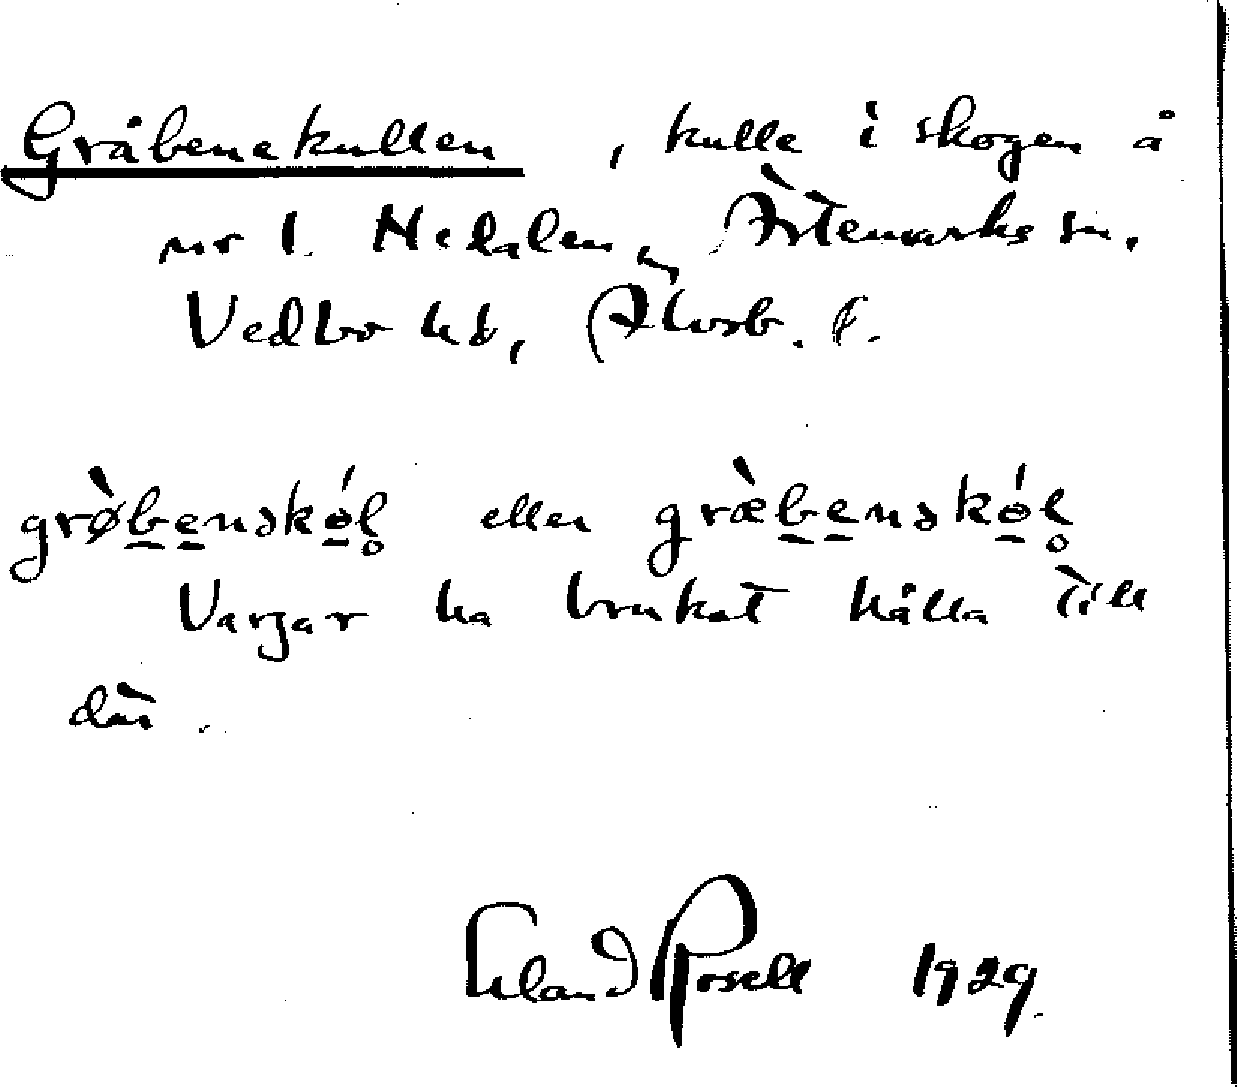 Gråbenekullen, kulle i skogen å
nr 1. Nedalen, Ärtemarks sn.
Vedbo hd, Älvsb. l.
grø̀benskól̥ eller græ̀benskól̥
Vargar ha brukat hålla till
där.
Erland Rosell 1929.